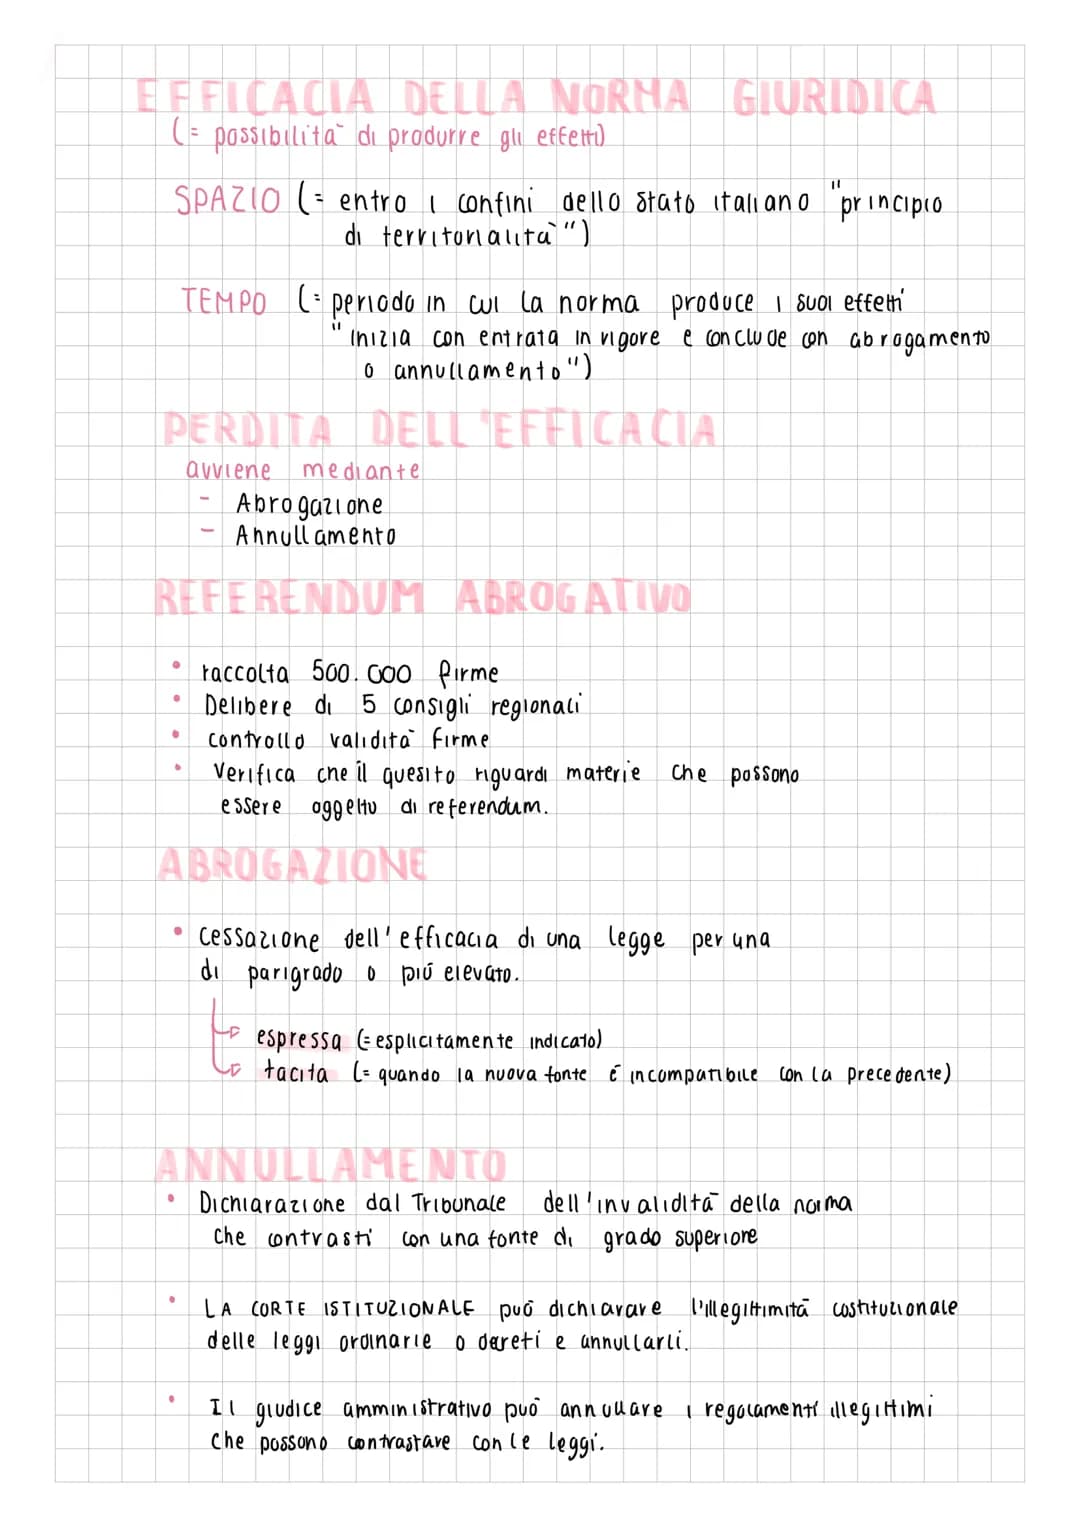 EFFICACIA DELLA NORMA GIURIDICA
(= possibilità di produrre gli effetti)
SPAZIO (= entro i confini dello Stato italiano "principio
di territorialità")
TEMPO (= periodo in cui la norma produce i suoi effetti
"Inizia con entrata in vigore e conclude con abrogamento
o annullamento")
PERDITA DELL'EFFICACIA
avviene mediante
- Abrogazione
- Annullamento
REFERENDUM ABROGATIVO
• raccolta 500.000 firme
• Delibere di 5 consigli regionali
• controllo validità firme
• Verifica che il quesito riguardi materie che possono
essere oggetto di referendum.
ABROGAZIONE
• Cessazione dell'efficacia di una legge per una
di parigrado o più elevato.
espressa (= esplicitamente indicato)
tacita (= quando la nuova fonte è incompatibile con la precedente)
ANNULLAMENTO
• Dichiarazione dal Tribunale dell'invalidità della norma
che contrasti con una fonte di grado superiore
• LA CORTE ISTITUZIONALE può dichiarare l'illegittimità costituzionale
delle leggi ordinarie o decreti e annullarli.
• Il giudice amministrativo può annullare i regolamenti illegittimi
che possono contrastare con le leggi.